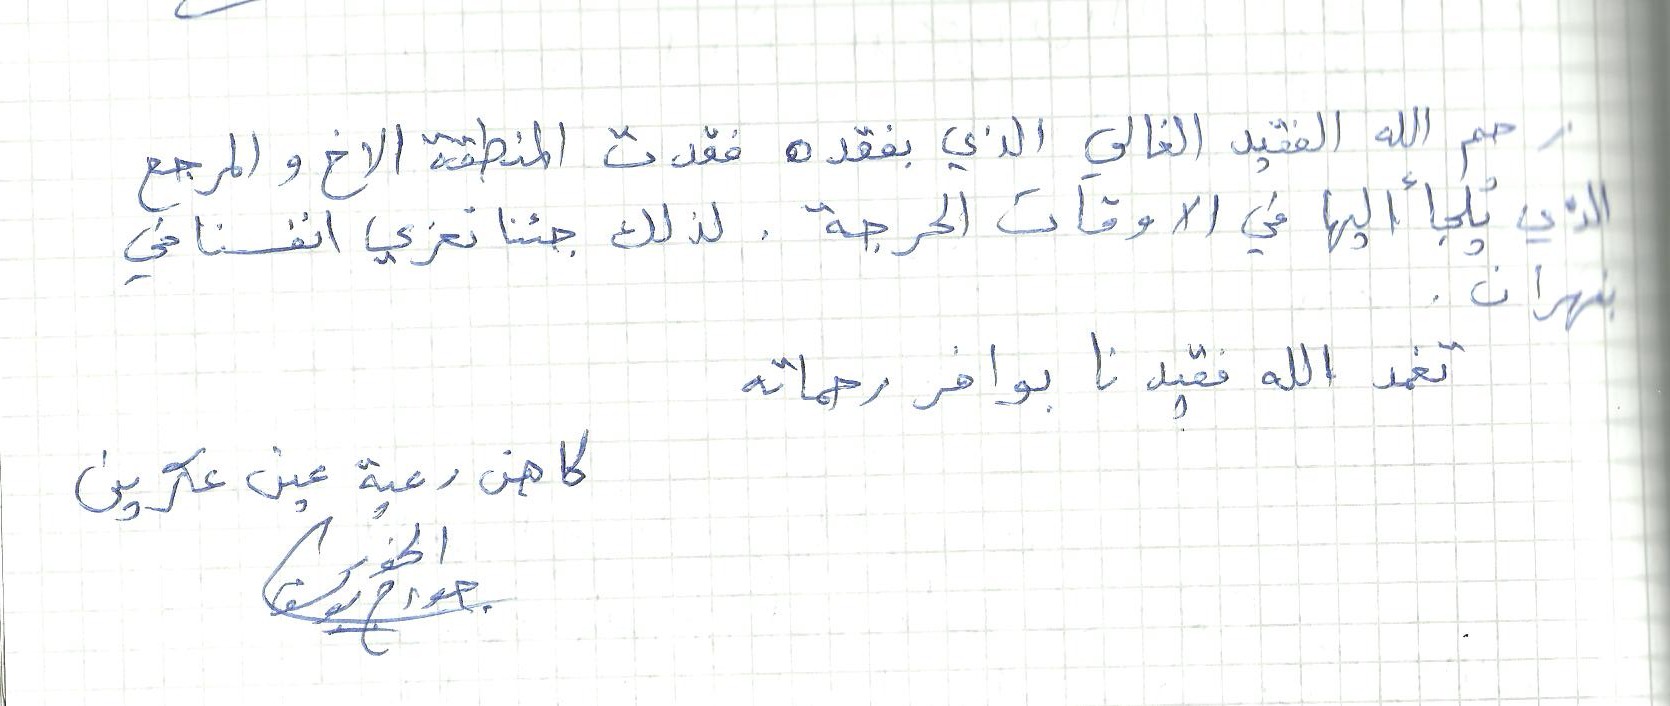 رحم الله الفقيد الغالي الذي بفقده فقدت المنطقة الاخ و المرجع
الذي يُلجأ اليها في الاوقات الحرجة . لذلك جئنا نعزي انفسنا في
بنهران .
تغمد الله فقيدنا بوافر رحماته
كاهن رعية عين عكرين
الخوري
جورج